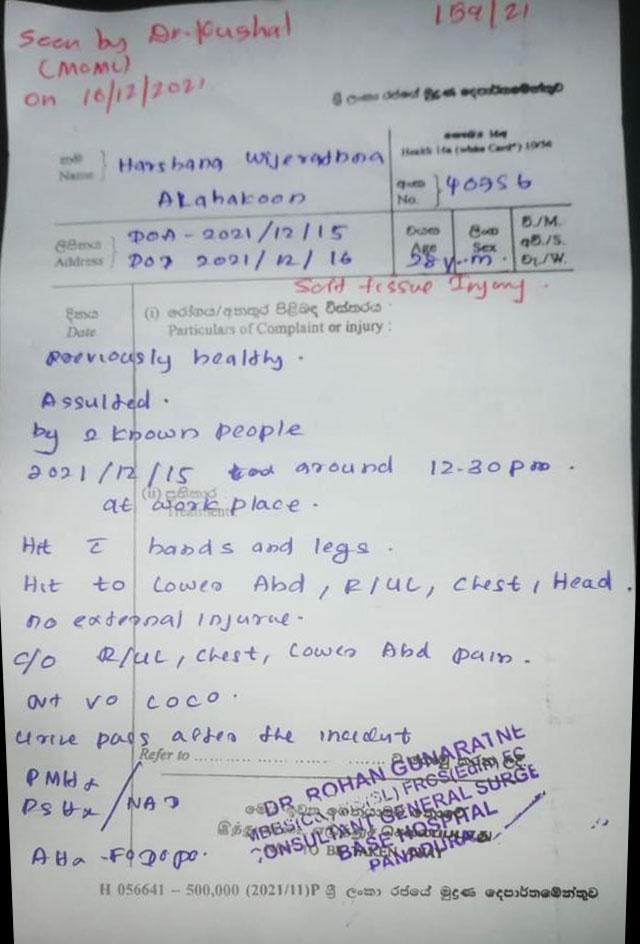 Seen by Dr. Kushal
159/21
(MOML)
on 16/12/2021
ශ්‍රී ලංකා රජයේ මුද්‍රණ දෙපාර්තමේන්තුව
Health 16a (white Card") 10/56
නම
Name
Harshana Wijerathna
Arahakoon
අංකය
No.
40956
ලිපිනය
Address
DOA - 2021/12/15
DOD 2021/12/16
වයස
Age
28 y
ස්ත්‍රී
Sex
m
වි./M.
අවි./S.
වැ./W.
Soft tissue Injury.
දිනය
Date
(i) රෝගය/අනතුර පිළිබඳ විස්තරය :
Particulars of Complaint or injury :
previously healthy.
Assulted.
by 2 known people
2021/12/15 around 12.30 pm.
(ii) ප්‍රතිකාර :
Treatment
at work place.
Hit c̄ hands and legs.
Hit to Lower Abd, R/UL, chest, Head.
no external injurue.
c/o R/UL, chest, Lower Abd pain.
vo COCO.
urine pass after the incident
Refer to
PMHx
PSHx / NAD
AHx -
DR ROHAN GUNARATNE
CONSULTANT GENERAL SURGE
BASE HOSPITAL
PANADURA
H 056641 – 500,000 (2021/11)P ශ්‍රී ලංකා රජයේ මුද්‍රණ දෙපාර්තමේන්තුව